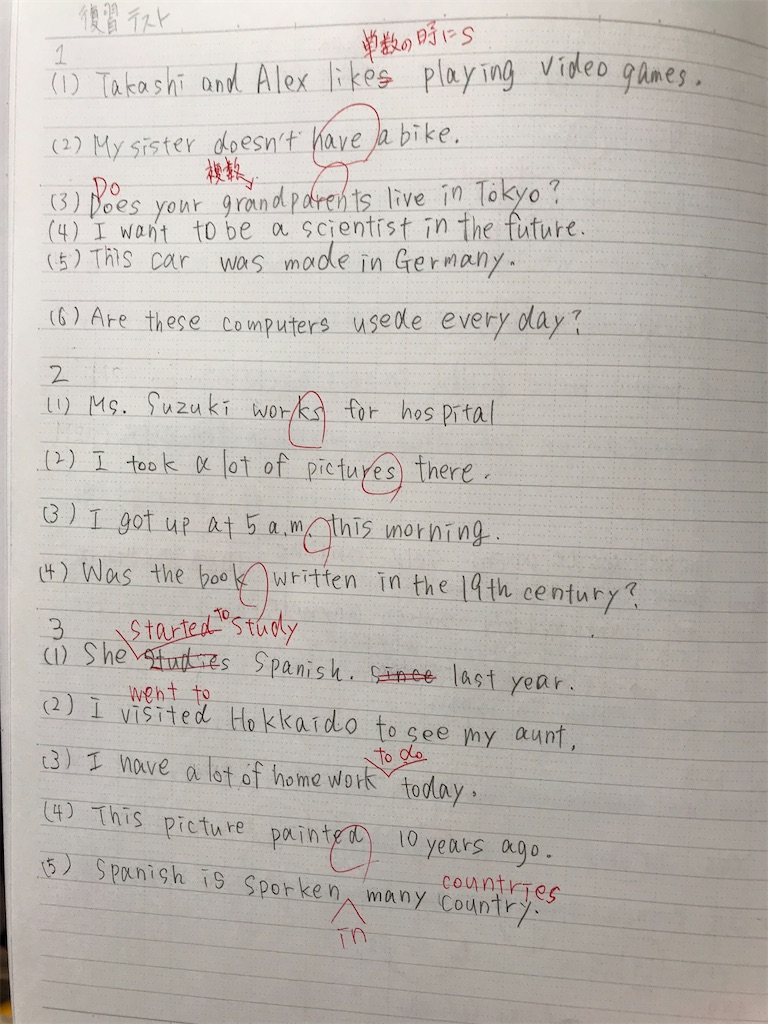 復習テスト
1
単数の時にS
(1) Takashi and Alex likes playing video games.
(2) My sister doesn't have a bike.
Do 複数
(3) Does your grandparents live in Tokyo?
(4) I want to be a scientist in the future.
(5) This car was made in Germany.
(6) Are these computers usede every day?
2
(1) Ms. Suzuki works for hospital
(2) I took a lot of pictures there.
(3) I got up at 5 a.m. this morning.
(4) Was the book written in the 19th century?
3
started to study
(1) She studies Spanish. since last year.
went to
(2) I visited Hokkaido to see my aunt.
to do
(3) I have a lot of homework today.
(4) This picture painted 10 years ago.
countries
(5) Spanish is sporken many country.
in